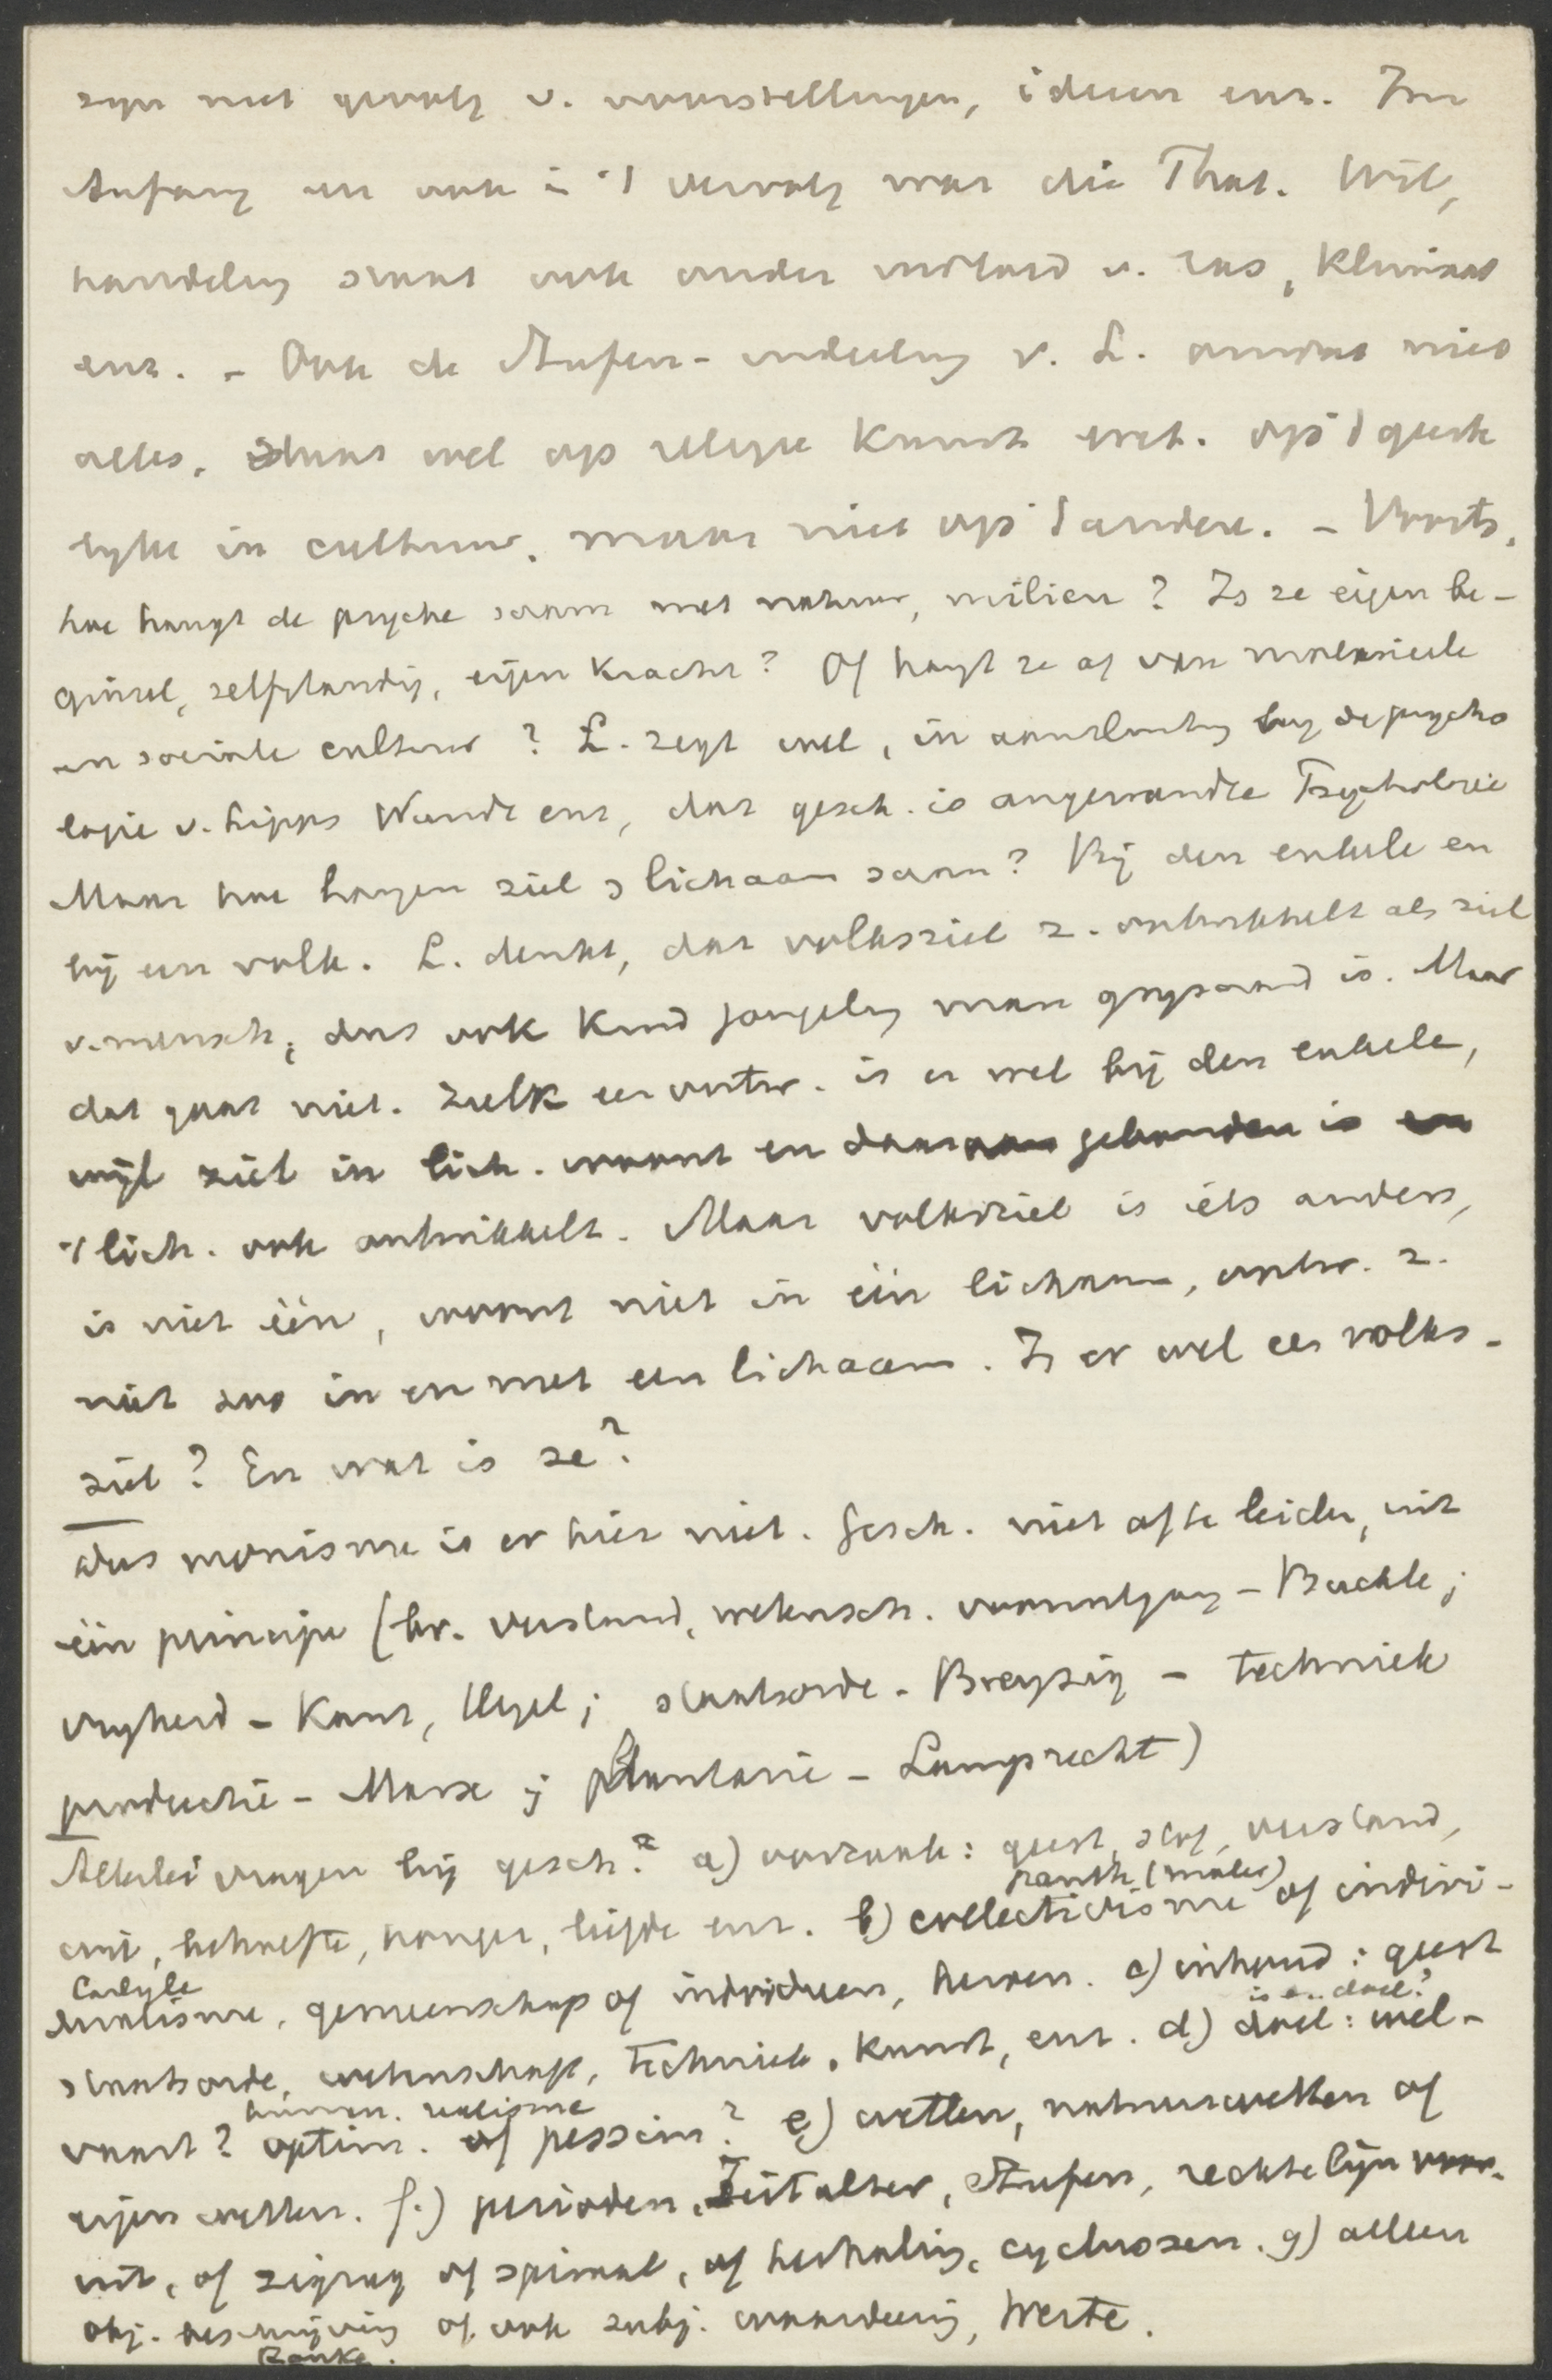 zijn met gevolg v. voorstellingen, ideeen enz. Im
Anfang en ook in 't vervolg war die That. Wil,
handeling staat ook onder invloed v. ras, klimaat
enz. - Ook de Stufen-indeeling v. L. omvat niet
alles. Slaat wel op religie kunst wet. op 't geeste
lijke in cultuur, maar niet op 't andere. - Voorts,
hoe hangt de psyche saam met natuur, milieu? Is ze eigen be-
ginsel, zelfstandig, eigen kracht? Of hangt ze af van materieele
en sociale cultuur? L. zegt wel, in aansluiting bij de psycho
logie v. Lipps Wundt enz, dat gesch. is angewandte Psychologie
Maar hoe hangen ziel & lichaam saam? Bij den enkele en
bij een volk. L. denkt, dat volksziel z. ontwikkelt als ziel
v. mensch, dus ook kind jongeling man grijsaard is. Maar
dat gaat niet. Zulk een ontw. is er wel bij den enkele,
wijl ziel in lich. woont en daaraan gebonden is en
't lich. ook ontwikkelt. Maar volksziel is iets anders,
is niet één, woont niet in één lichaam, ontw. z.
niet zoo in en met een lichaam. Is er wel een volks-
ziel? En wat is ze?
Dus monisme is er hier niet. Gesch. niet af te leiden uit
één principe (bv. verstand, wetensch. vooruitgang - Buckle;
vrijheid - Kant, Hegel; staatsorde - Breysig - techniek
productie - Marx; phantasie - Lamprecht)
Allerlei vragen bij gesch.? a) oorzaak: geest, stof, verstand,
wil, behoefte, honger, liefde enz. b) collectivisme of indivi-
panth. (mater)
dualisme, gemeenschap of individuen, heroen. c) inhoud: geest
Carlyle
staatsorde, wetenschap, techniek, kunst, enz. d) doel: wel-
is er doel?
vaart? optim. of pessim.? e) wetten, natuurwetten of
human. realisme
eigen wetten. f.) perioden, Zeitalter, Stufen, rechte lijn voor-
uit, of zigzag of spiraal, of herhaling, cycluszen. g) alleen
obj. beschrijving of ook subj. waardeering, Werte.
Ranke.